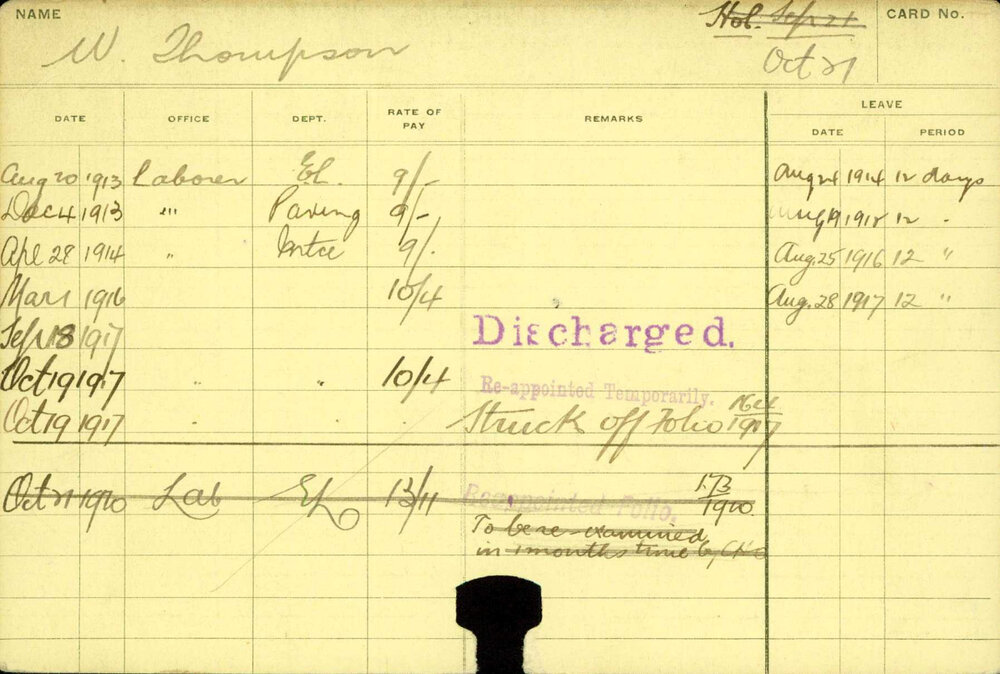 NAME Hol. Sep 21 CARD No.
W. Thompson Oct 21
DATE OFFICE DEPT. RATE OF PAY REMARKS LEAVE
DATE PERIOD
Aug 20 1913 Laborer El. 9/- Aug 24 1914 12 days
Dec 4 1913 " Paving 9/- Aug 19 191 12 "
Apl 28 1914 " Mtce 9/- Aug. 25 1916 12 "
Mar 1 1916 10/4 Aug. 28 1917 12 "
Sep 18 1917 Discharged.
Oct 1 1917 " " 10/4 Re-appointed Temporarily.
Oct 19 1917 " " " Struck off Folio 1917
Oct 21 1920 Lab El 13/11 Reappointed Folio. 173/1920
To be re-examined
in months time by